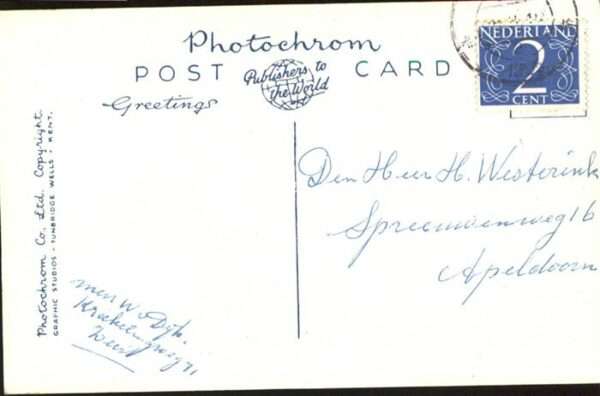 Photochrom
POST CARD
Publishers to
the World
Greetings
NEDERLAND
2
CENT
Photochrom Co. Ltd. Copyright.
GRAPHIC STUDIOS · TUNBRIDGE WELLS · KENT.
Den Heer H. Westerink
Spreeuwenweg 16
Apeldoorn
W v Dijk.
Zeist